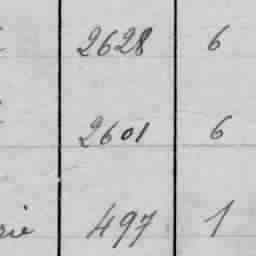 2628 6
2601 6
rie 497 1